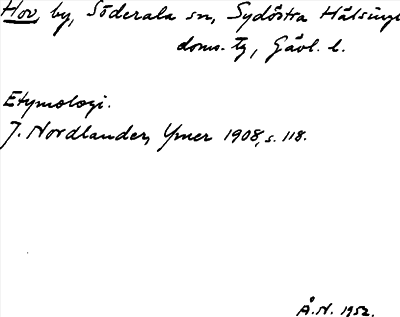 Hov, by, Söderala sn, Sydöstra Hälsinge
doms. tg, Gävl. l.
Etymologi.
J. Nordlander, Ymer 1908, s. 118.
Å.N. 1952.